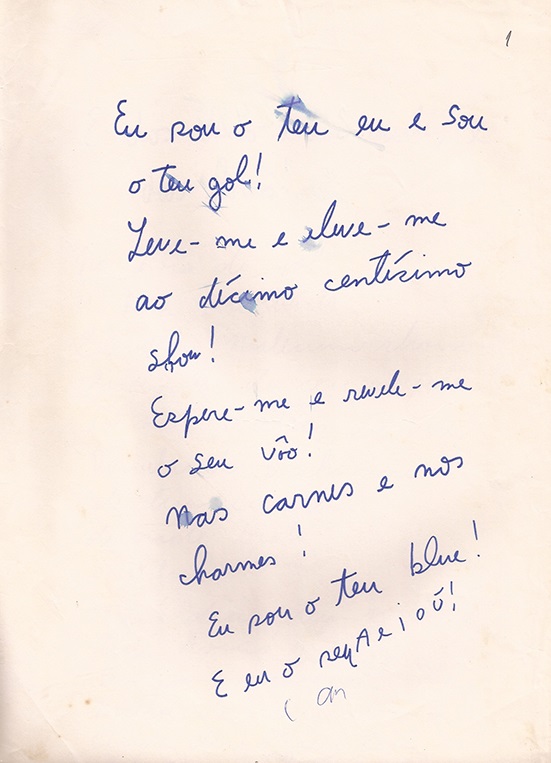 1
Eu sou o teu eu e sou
o teu gol!
Leve-me e eleve-me
ao décimo centésimo
show!
Espere-me e revele-me
o seu vôo!
Nas carnes e nos
charmes!
Eu sou o teu blue!
E eu o seu A e i o ū!
( an